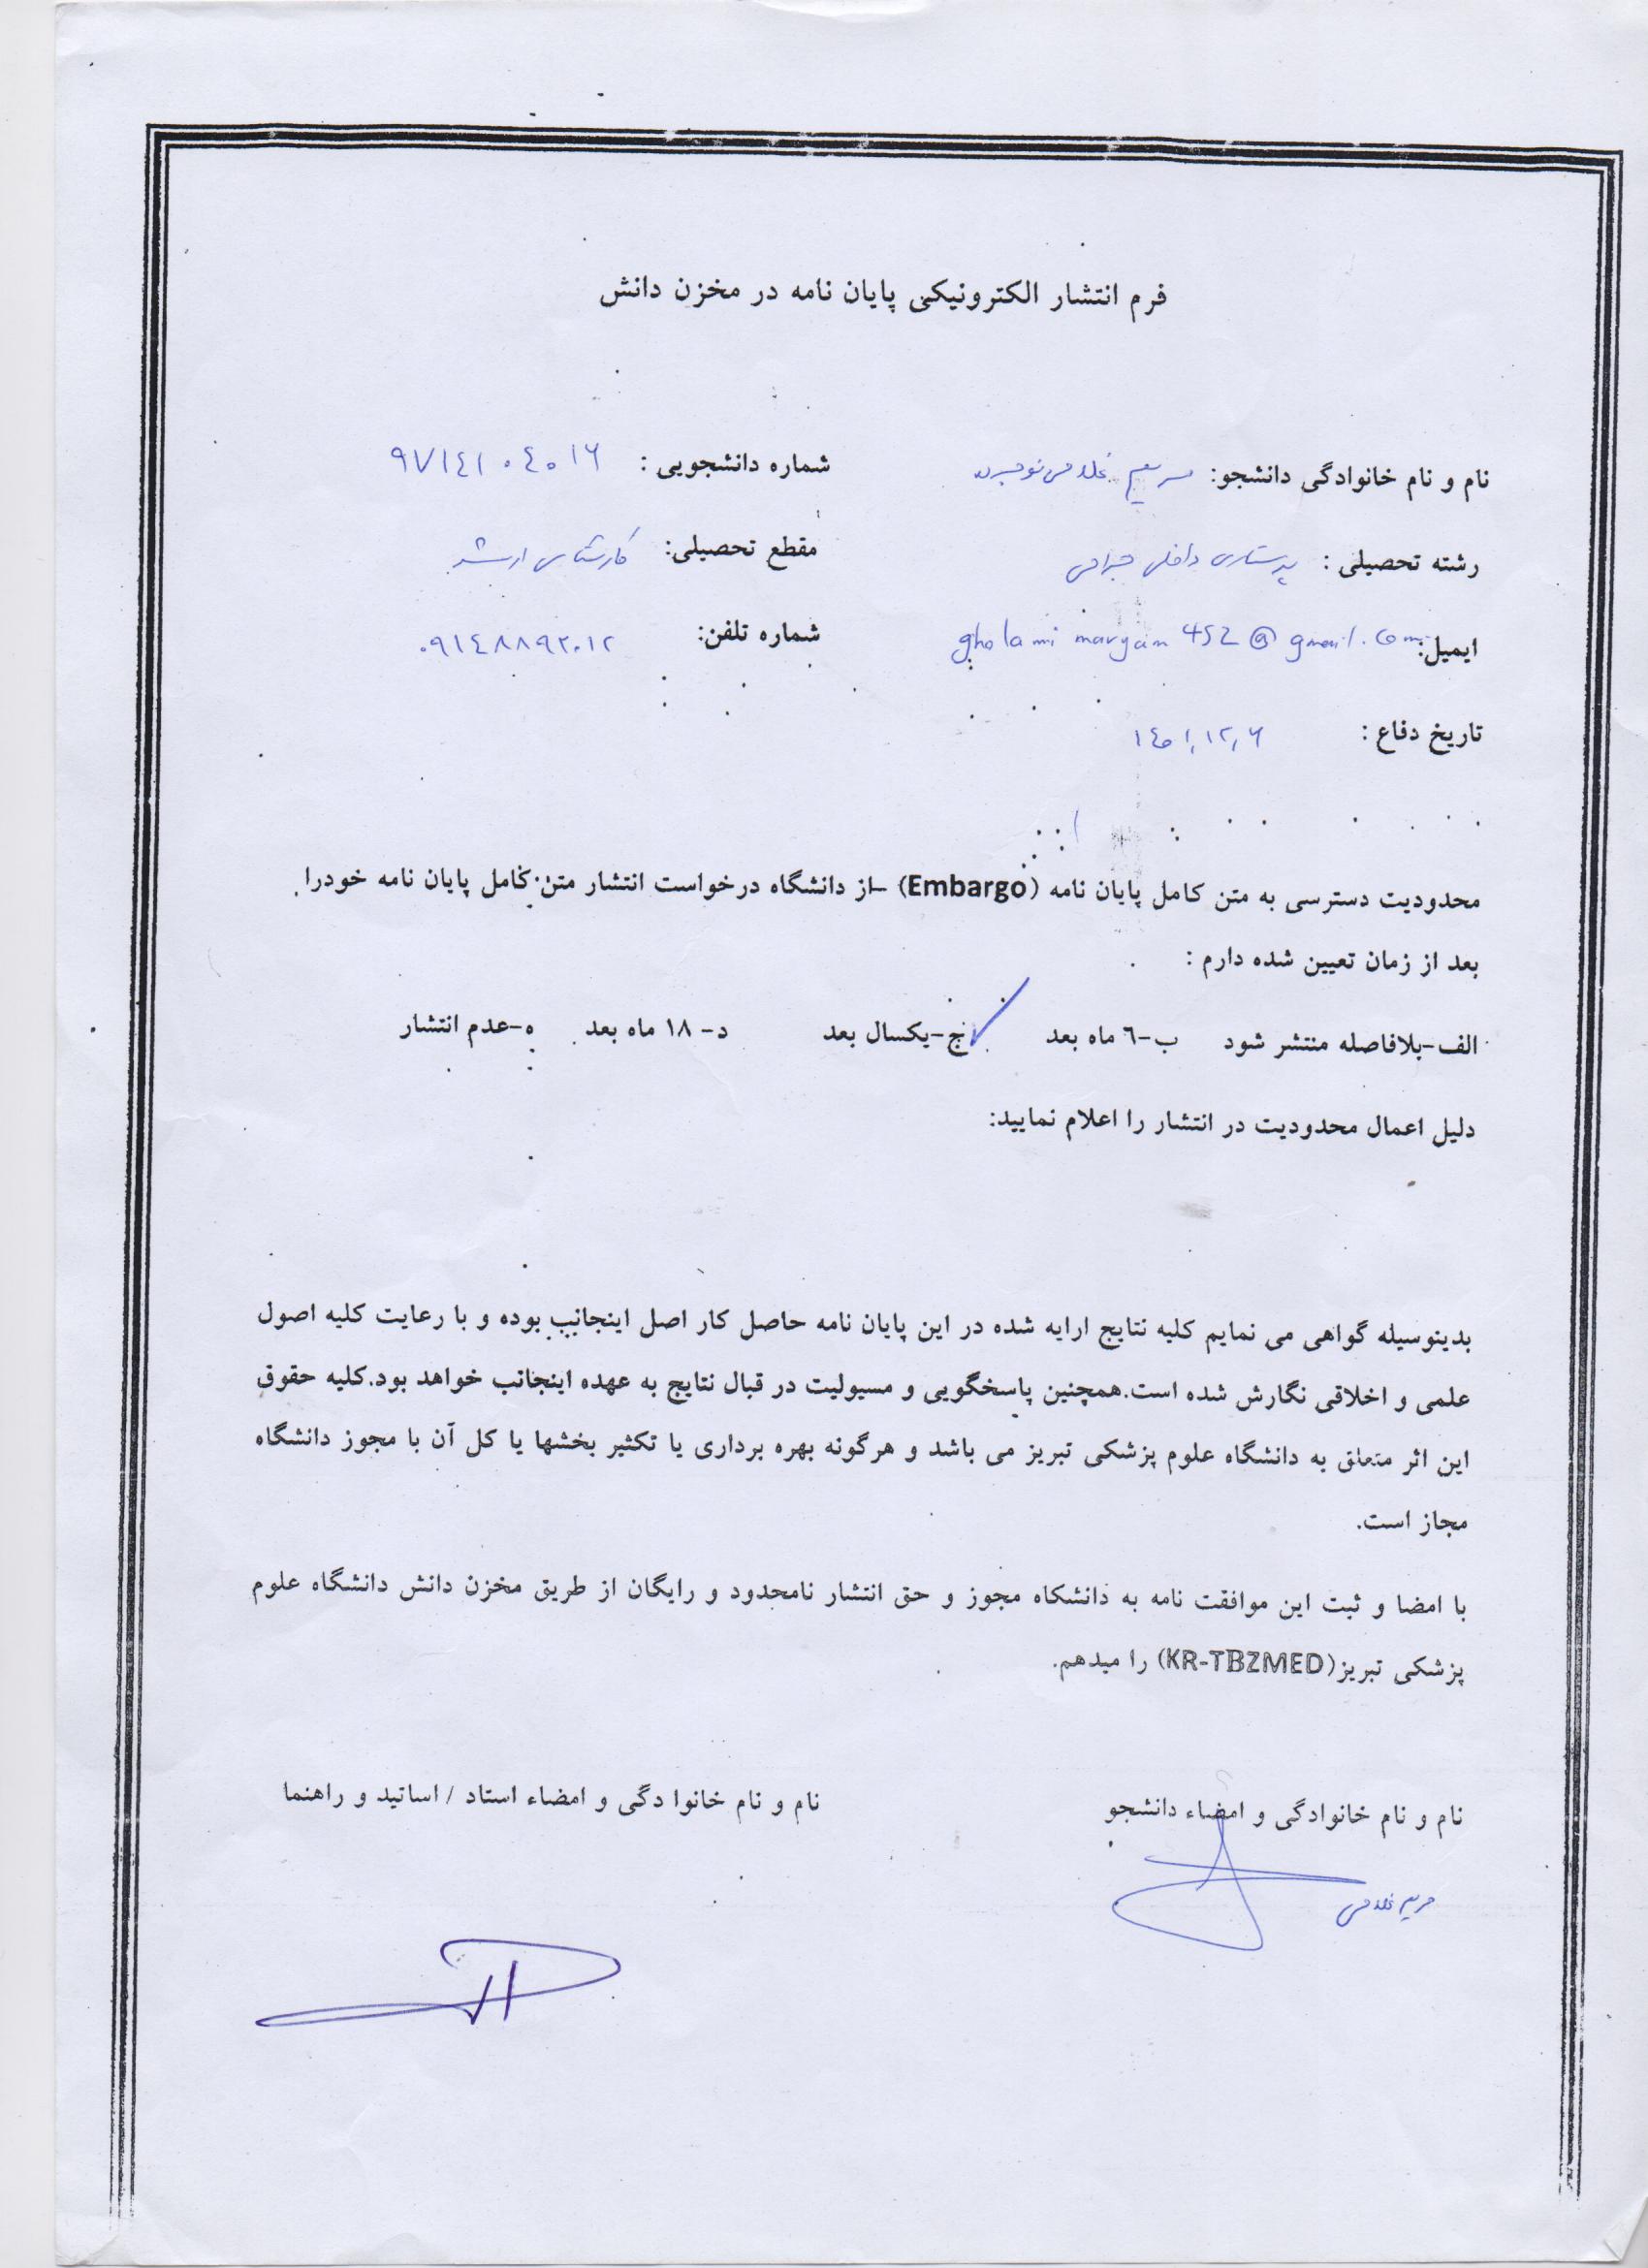 فرم انتشار الکترونیکی پایان نامه در مخزن دانش
نام و نام خانوادگی دانشجو: مریم غلامی شماره دانشجویی : ۹۷۱٤۱۰٤۰۱۶
رشته تحصیلی : پرستاری داخلی جراحی مقطع تحصیلی: کارشناسی ارشد
ایمیل: gholami maryam 452@gmail.com شماره تلفن: ۰۹۱٤۸۸۹۲۰۱۲
تاریخ دفاع : ۱٤۰۱,۱۲,۶
محدودیت دسترسی به متن کامل پایان نامه (Embargo) –از دانشگاه درخواست انتشار متن کامل پایان نامه خودرا
بعد از زمان تعیین شده دارم :
الف-بلافاصله منتشر شود ب-٦ ماه بعد ج-یکسال بعد د- ۱۸ ماه بعد ه-عدم انتشار
دلیل اعمال محدودیت در انتشار را اعلام نمایید:
بدینوسیله گواهی می نمایم کلیه نتایج ارایه شده در این پایان نامه حاصل کار اصل اینجانب بوده و با رعایت کلیه اصول
علمی و اخلاقی نگارش شده است.همچنین پاسخگویی و مسیولیت در قبال نتایج به عهده اینجانب خواهد بود.کلیه حقوق
این اثر متعلق به دانشگاه علوم پزشکی تبریز می باشد و هرگونه بهره برداری یا تکثیر بخشها یا کل آن با مجوز دانشگاه
مجاز است.
با امضا و ثبت این موافقت نامه به دانشکاه مجوز و حق انتشار نامحدود و رایگان از طریق مخزن دانش دانشگاه علوم
پزشکی تبریز(KR-TBZMED) را میدهم.
نام و نام خانوادگی و امضاء دانشجو نام و نام خانوا دگی و امضاء استاد / اساتید و راهنما
مریم غلامی